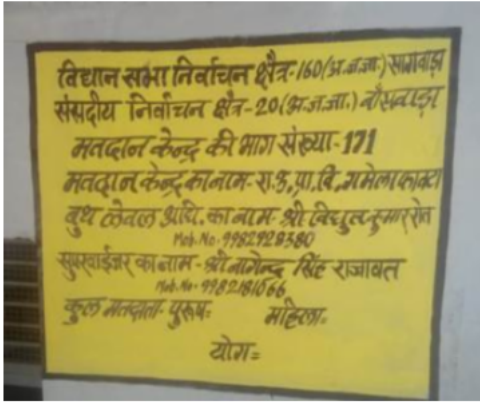 विधान सभा निर्वाचन क्षैत्र-160(अ.ज.जा.) सागवाड़ा
संसदीय निर्वाचन क्षैत्र-20(अ.ज.जा.) बाँसवाड़ा
मतदान केन्द्र की भाग संख्या-171
मतदान केन्द्र का नाम-रा.उ.प्रा.वि. गमेला फला
बुथ लेवल अधि. का नाम-श्री विद्युत कुमार रोत
Mob.No.9982928380
सुपरवाईजर का नाम-श्री नागेन्द्र सिंह राजावत
Mob.No.9982181066
कुल मतदाता- पुरूष= महिला=
योग=